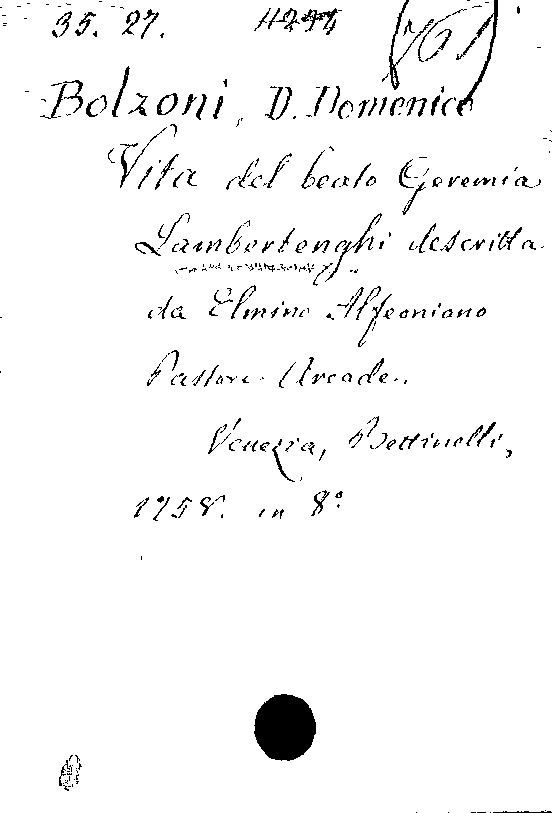 35. 27. (761)
Bolzoni, D. Domenico
Vita del beato Geremia
Lambertenghi descritta
da Elmino Alfeoniano
Pastore Arcade.
Venezia, Bettinelli,
1758. in 8°